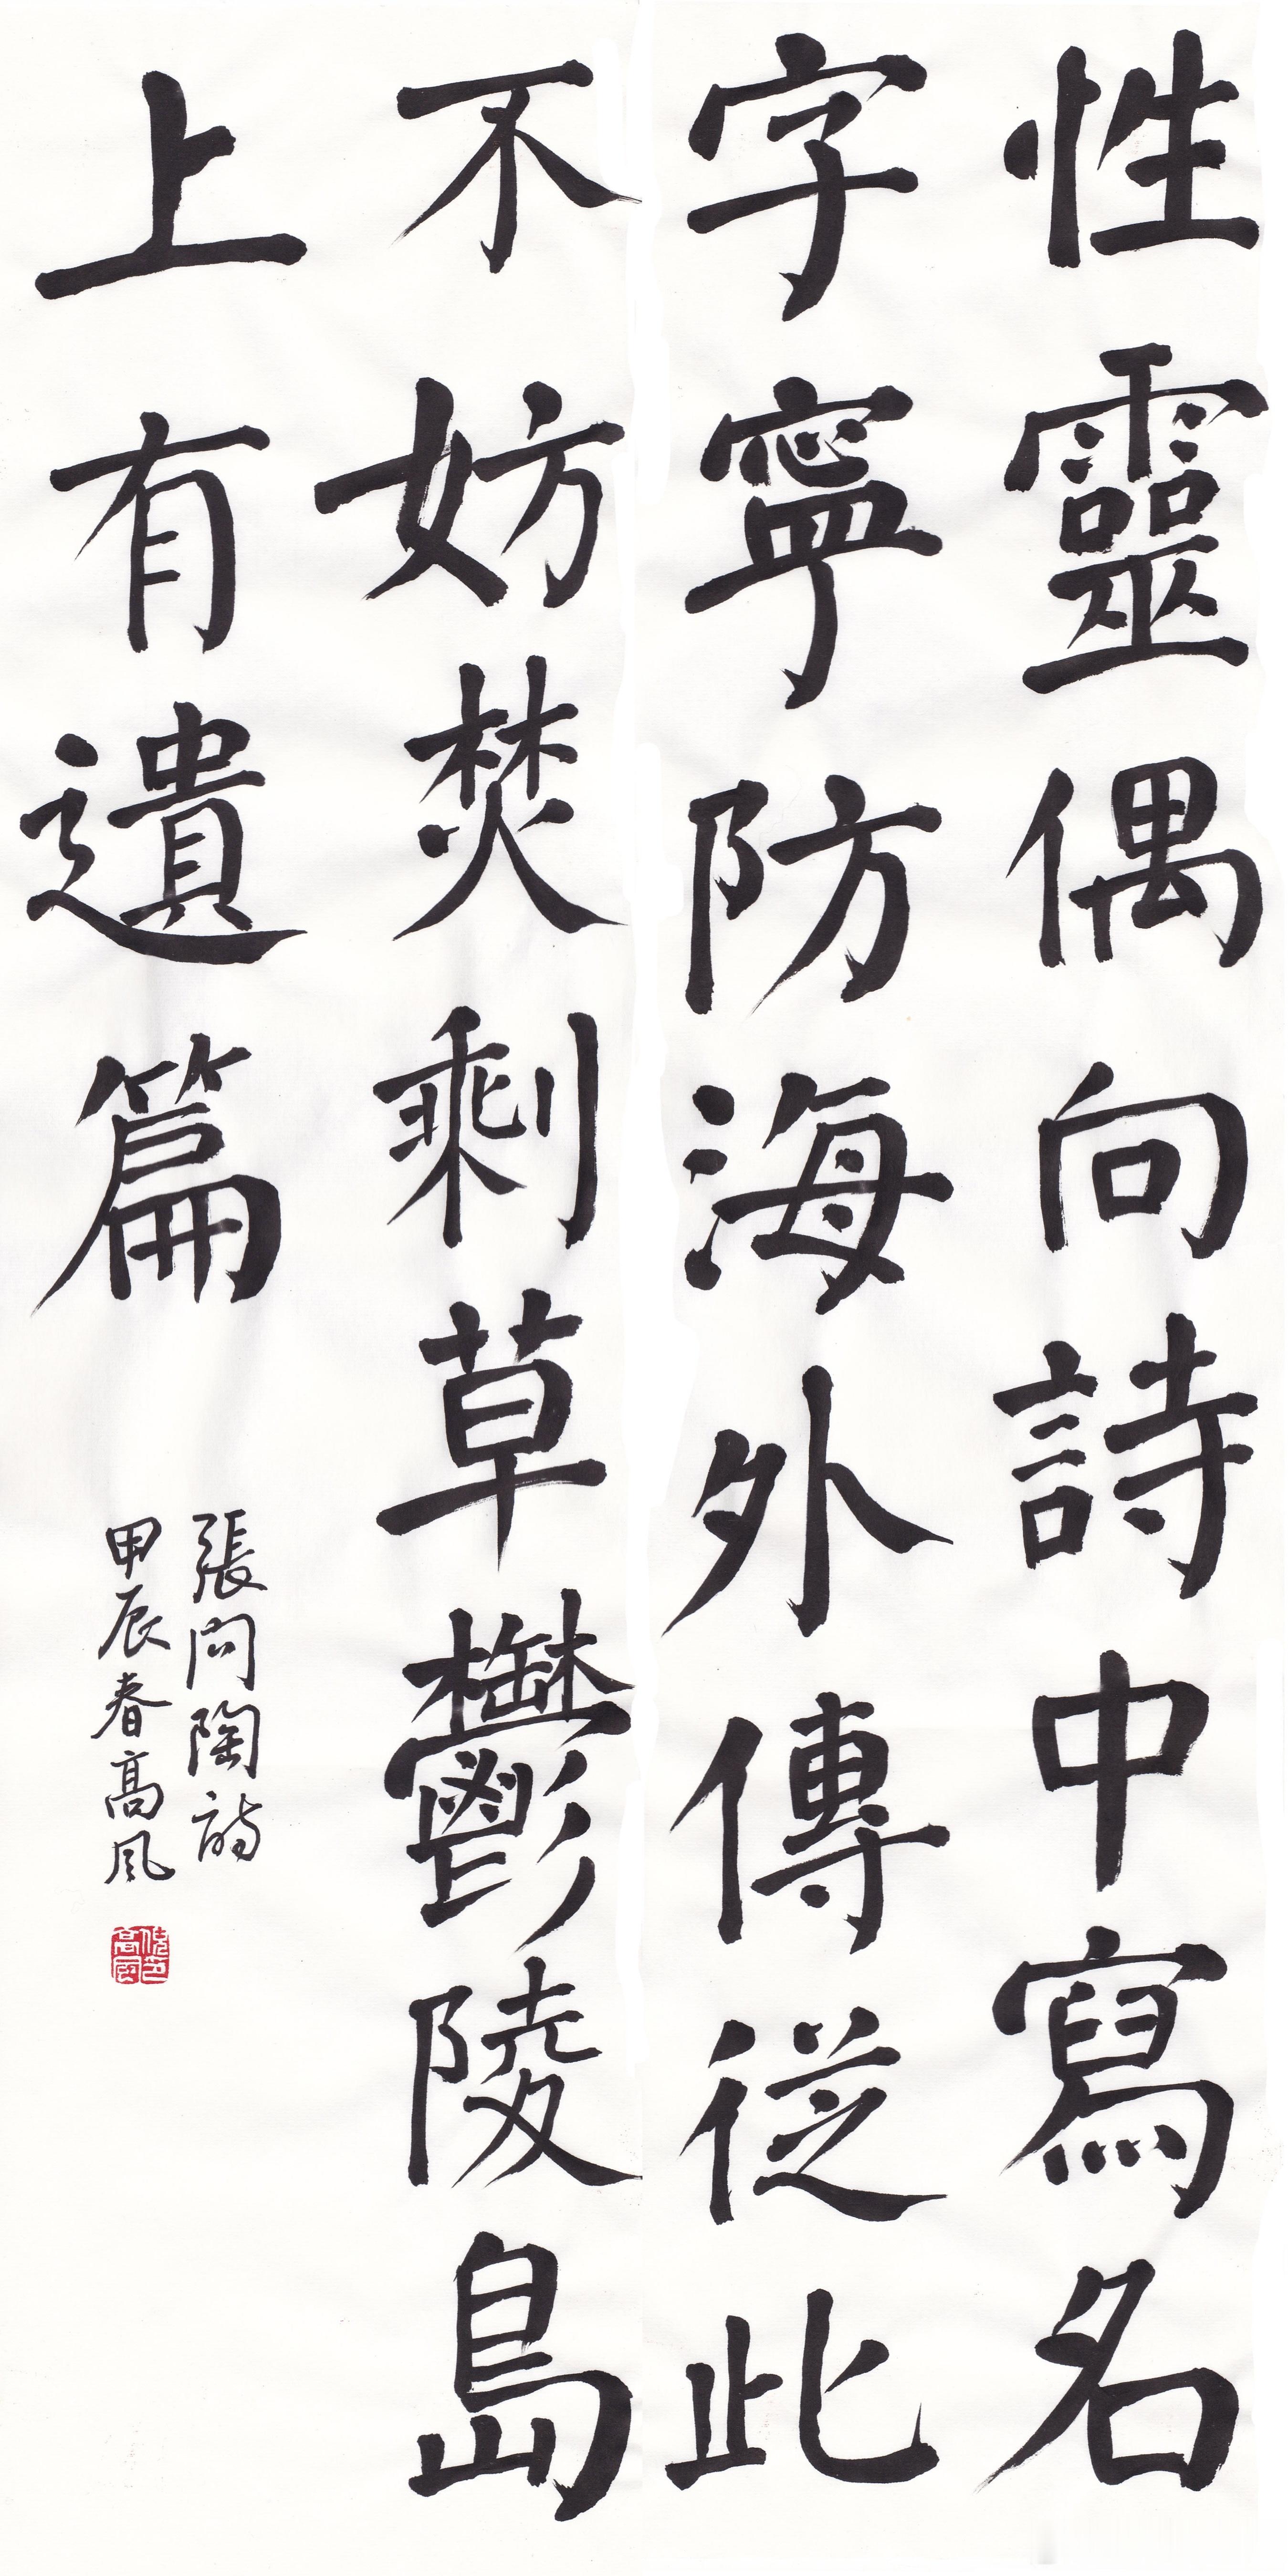 性靈偶向詩中寫名
字寧防海外傳從此
不妨焚剩草鬱陵島
上有遺篇
張問陶詩
甲辰春高風